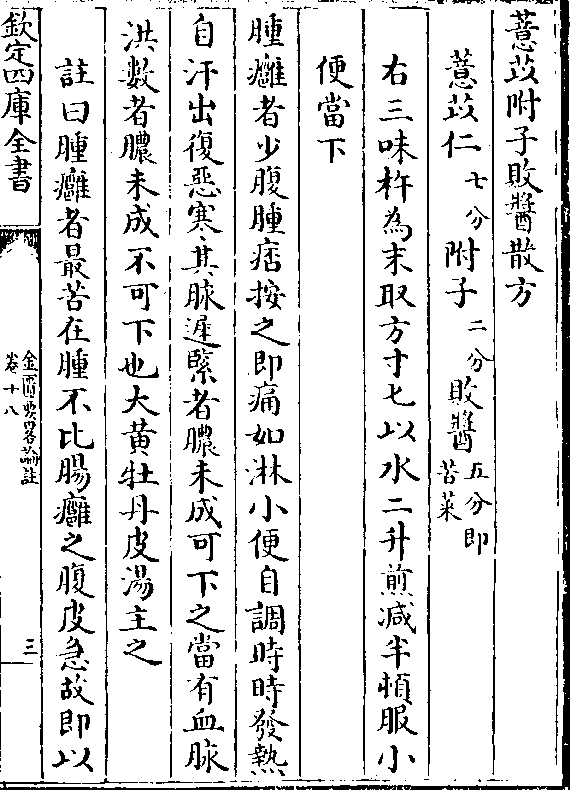 薏苡附子敗醬散方
薏苡仁七分 附子二分 敗醬五分即苦菜
右三味杵為末取方寸七以水二升煎减半頓服小
便當下
腫癰者少腹腫痞按之即痛如淋小便自調時時發熱
自汗出復惡寒其脉遲緊者膿未成可下之當有血脉
洪數者膿未成不可下也大黄牡丹皮湯主之
註曰腫癰者最苦在腫不比腸癰之腹皮急故即以
欽定四庫全書
金匱要畧論註
卷十八
三